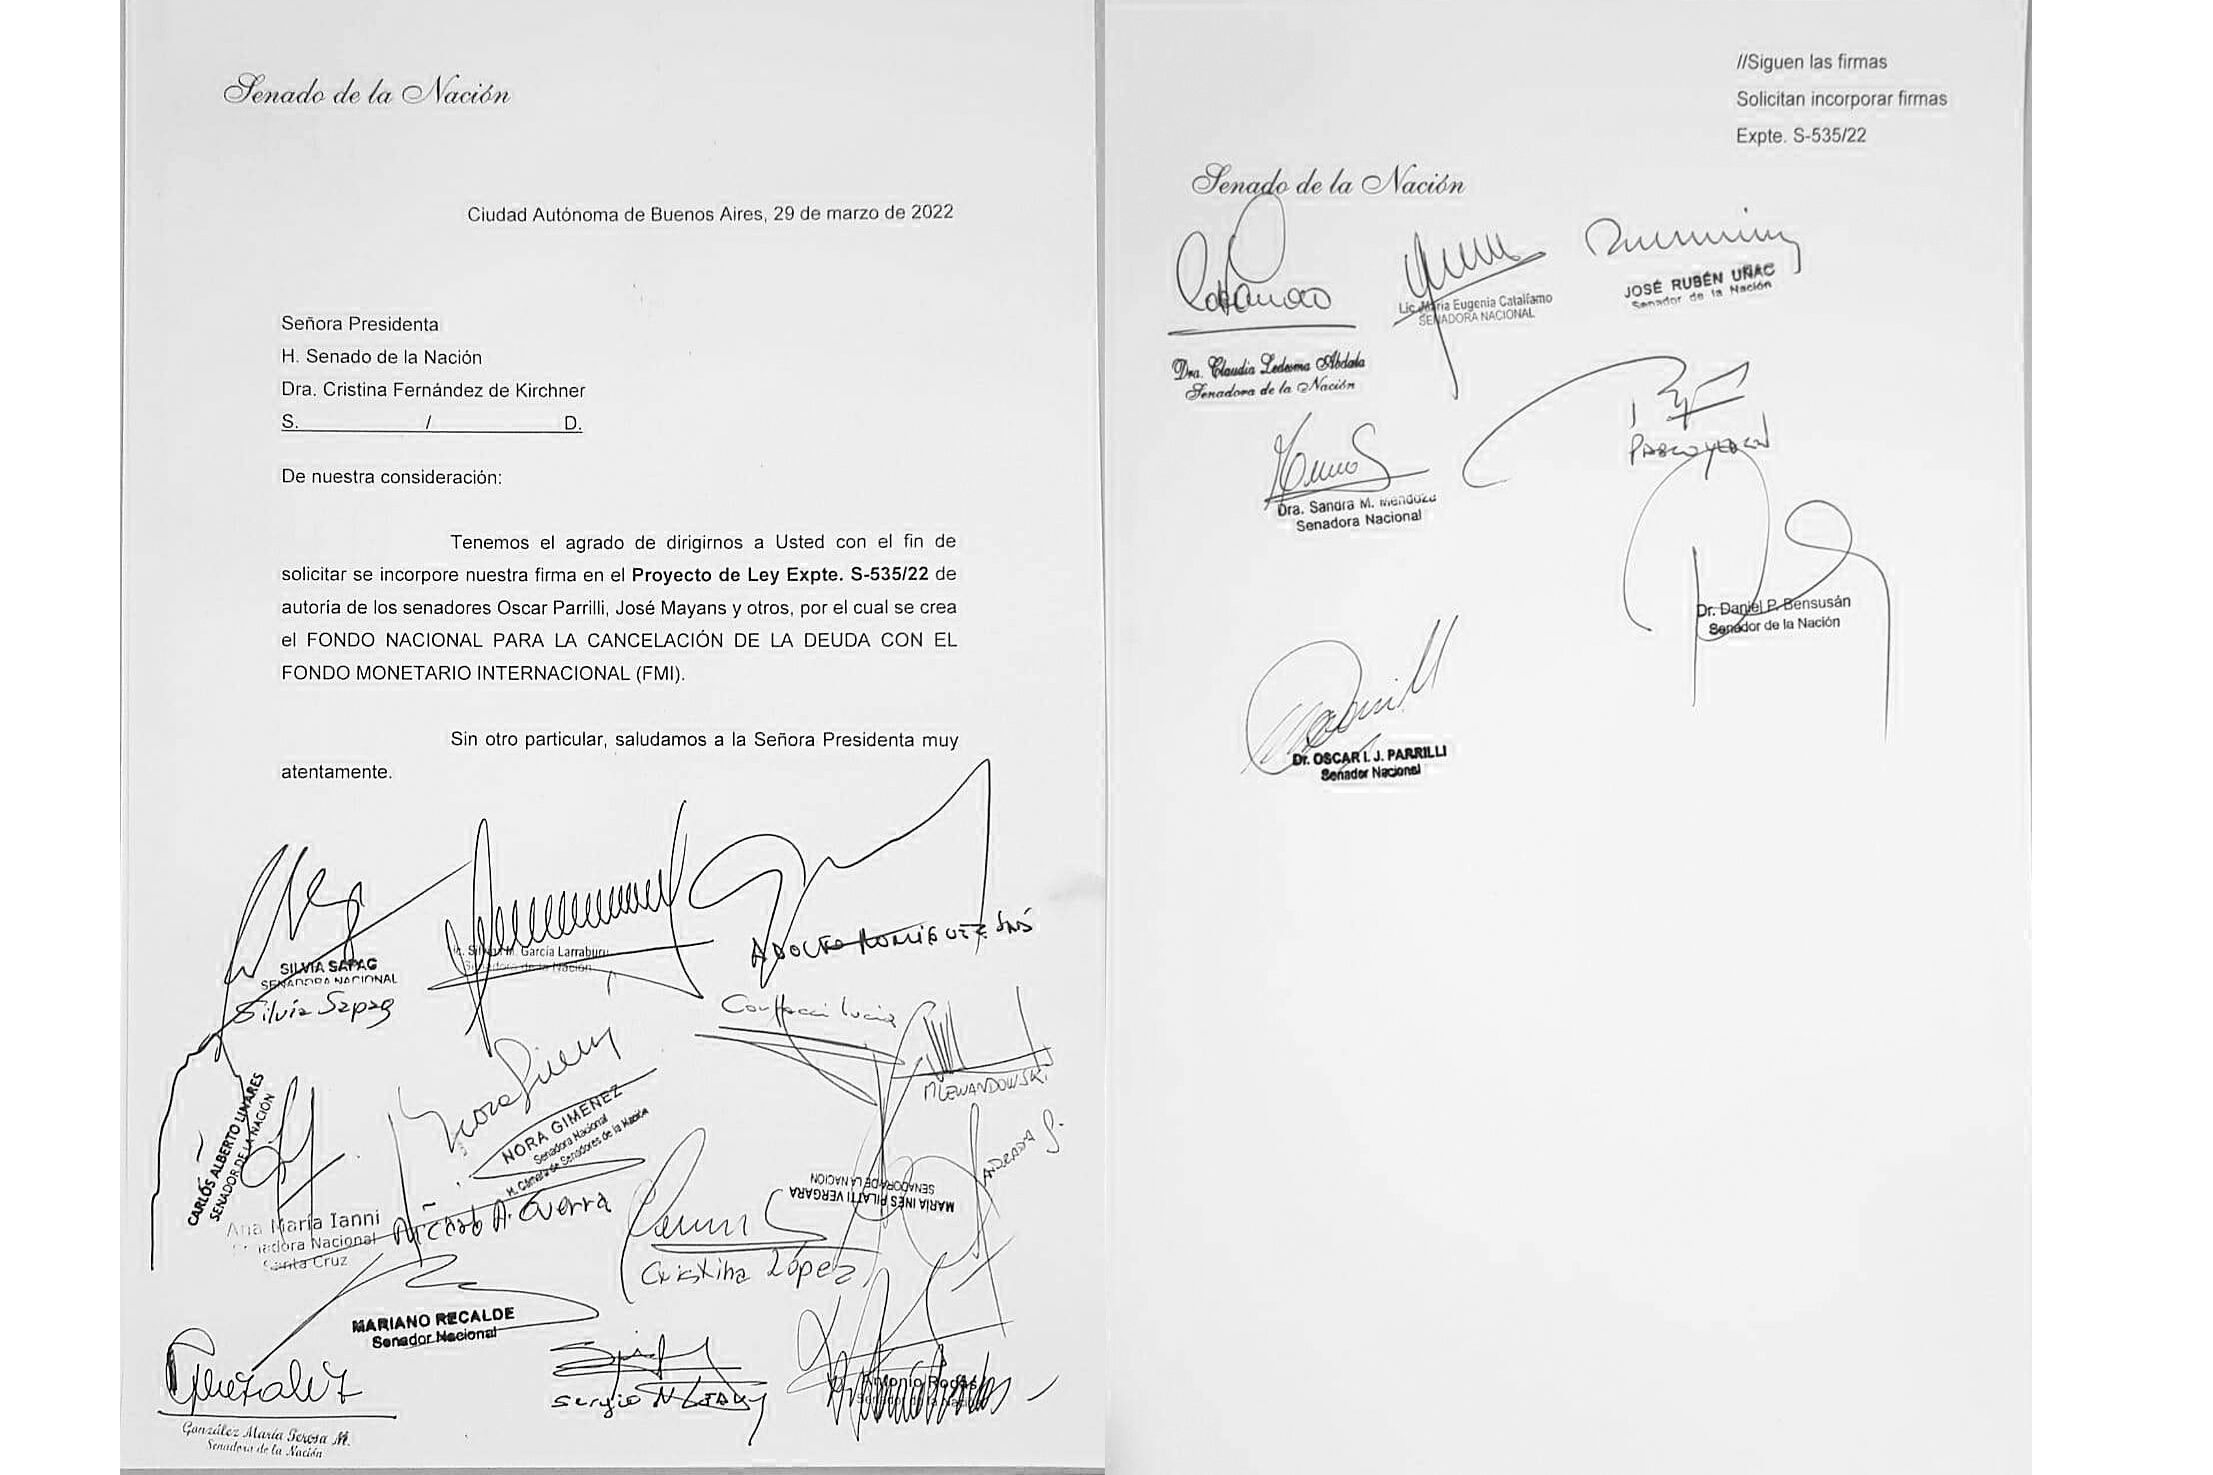 Senado de la Nación
Ciudad Autónoma de Buenos Aires, 29 de marzo de 2022
Señora Presidenta
H. Senado de la Nación
Dra. Cristina Fernández de Kirchner
S. / D.
De nuestra consideración:
Tenemos el agrado de dirigirnos a Usted con el fin de
solicitar se incorpore nuestra firma en el Proyecto de Ley Expte. S-535/22 de
autoria de los senadores Oscar Parrilli, José Mayans y otros, por el cual se crea
el FONDO NACIONAL PARA LA CANCELACIÓN DE LA DEUDA CON EL
FONDO MONETARIO INTERNACIONAL (FMI).
Sin otro particular, saludamos a la Señora Presidenta muy
atentamente.
SILVIA SAPAG
SENADORA NACIONAL
Silvia Sapag
García Larraburu
Senadora de la Nación
ADOLFO RODRIGUEZ SAÁ
Lucia
MLEWANDOWSKI
CARLOS ALBERTO LINARES
SENADOR DE LA NACIÓN
NORA GIMENEZ
Senadora Nacional
H. Cámara de Senadores de la Nación
ANDRADA G.
MARÍA INES PILATTI VERGARA
SENADORA DE LA NACION
Ana María Ianni
Senadora Nacional
Santa Cruz
A. Guerra
Cristina López
MARIANO RECALDE
Senador Nacional
González
González María Teresa M.
Senadora de la Nación
Sergio N. Leavy
Antonio Rodas
//Siguen las firmas
Solicitan incorporar firmas
Expte. S-535/22
Senado de la Nación
Dra. Claudia Ledesma Abdala
Senadora de la Nación
Lic. María Eugenia Catalfamo
SENADORA NACIONAL
JOSÉ RUBÉN UÑAC
Senador de la Nación
Dra. Sandra M. Mendoza
Senadora Nacional
PABLO YEDLIN
Dr. Daniel P. Bensusán
Senador de la Nación
Dr. OSCAR I. J. PARRILLI
Senador Nacional